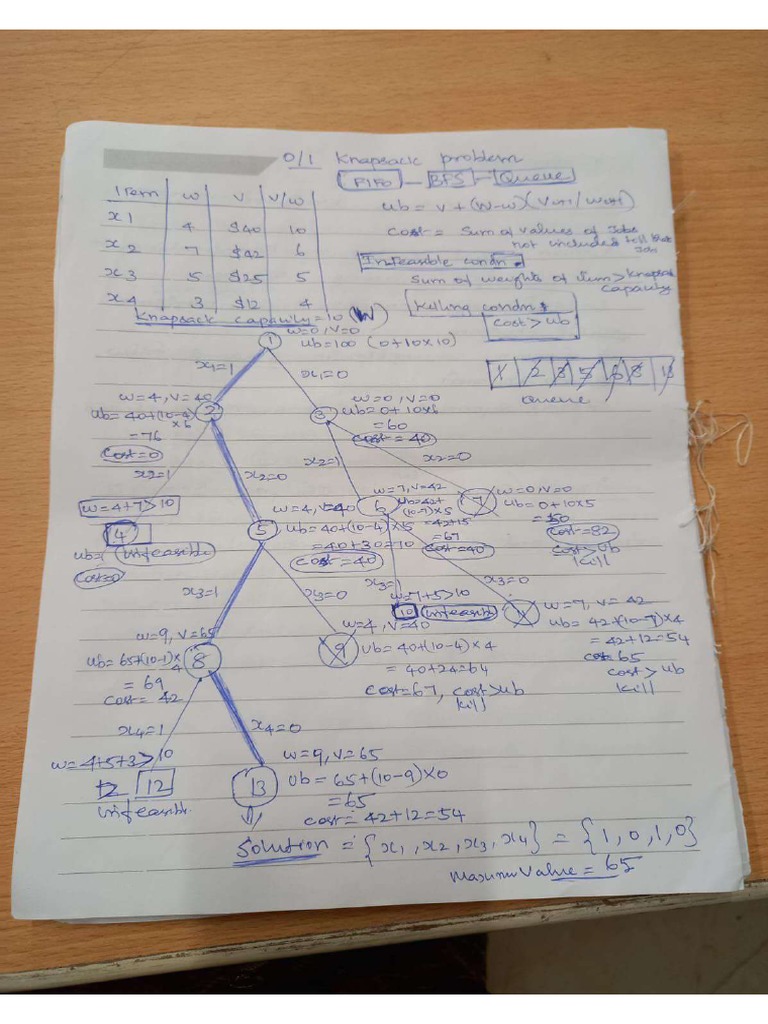 0/1 Knapsack problem
FIFO - BFS - Queue
Item w v v/w
x1 4 $40 10
x2 7 $42 6
x3 5 $25 5
x4 3 $12 4
Knapsack capacity = 10 (W)
ub = v + (W-w)(Vi+1/wi+1)
Cost = Sum of values of Jobs
not included till that
Job
Infeasible condn:
Sum of weights of Item > Knapsack
capacity
Killing condn:
cost > ub
w=0, v=0
1
ub=100 (0+10x10)
1 2 3 5 6 8 13
Queue
x1=1
x1=0
w=4, v=40
2
ub=40+(10-4)
x6
=76
cost=0
w=0, v=0
3
ub=0+10x6
=60
cost=40
x2=1
x2=0
x2=1
x2=0
w=4+7>10
4
ub=
infeasible
cost=0
w=4, v=40
5
ub=40+(10-4)x5
=40+30=70
cost=40
w=7, v=42
6
ub=42+
(10-7)x5
=42+15
=67
cost=40
w=0, v=0
7
ub=0+10x5
=50
cost=82
cost>ub
kill
x3=1
x3=0
x3=1
x3=0
w=9, v=65
8
ub=65+(10-9)x
4
=69
cost=42
w=4, v=40
9
ub=40+(10-4)x4
=40+24=64
cost=67, cost>ub
kill
w=7+5>10
10 infeasible
11
w=7, v=42
ub=42+(10-7)x4
=42+12=54
cost 65
cost>ub
kill
x4=1
x4=0
w=4+5+3>10
12
infeasible
w=9, v=65
13
ub=65+(10-9)x0
=65
cost=42+12=54
Solution = {x1, x2, x3, x4} = {1,0,1,0}
Maximum Value = 65